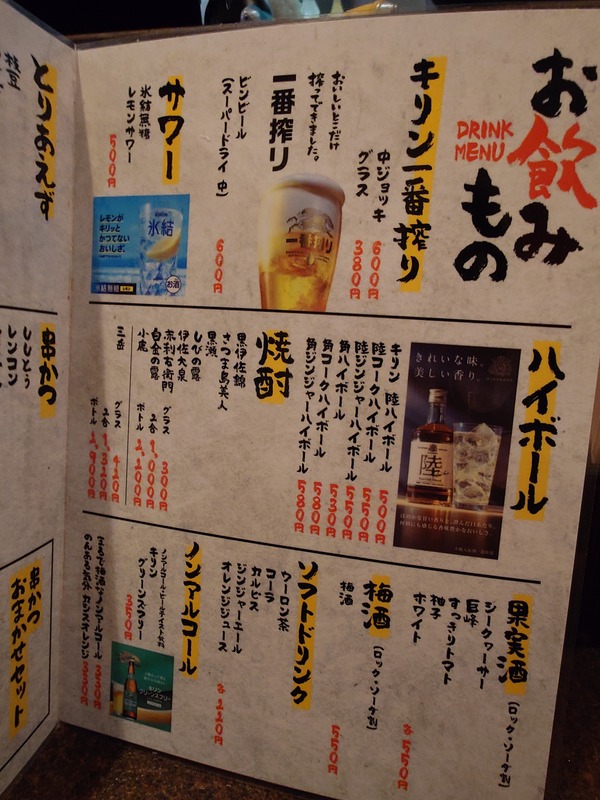 お飲みもの
DRINK
MENU
キリン一番搾り
中ジョッキ 600円
グラス 380円
おいしいとこだけ
搾ってできました。
一番搾り
一番搾り
ビンビール
(スーパードライ 中) 600円
サワー
氷結無糖
レモンサワー 500円
レモンが
キリッと
かつてない
おいしさ。
氷結
お酒
ハイボール
きれいな味。
美しい香り。
陸
キリン 陸ハイボール 500円
陸コークハイボール 550円
陸ジンジャーハイボール 550円
角ハイボール 530円
角コークハイボール 580円
角ジンジャーハイボール 580円
焼酎
黒伊佐錦
さつま島美人
黒瀬
しびの露
伊佐大泉
赤利右衛門
白金の露
小鹿
グラス 300円
2合 1,000円
ボトル 2,200円
三岳
グラス 420円
2合 1,320円
ボトル 2,900円
果実酒(ロック・ソーダ割)
シークヮーサー
巨峰
すっきりトマト
柚子
ホワイト
各550円
梅酒(ロック・ソーダ割)
梅酒 550円
ソフトドリンク
ウーロン茶
コーラ
カルピス
ジンジャーエール
オレンジジュース
各220円
ノンアルコール
ノンアルコール・ビールテイスト飲料
キリン
グリーンズフリー 350円
まるで梅酒なノンアルコール 350円
のんある気分 カシスオレンジ 350円
とりあえず
枝豆
串かつ
ししとう
レンコン
串かつ
おまかせセット